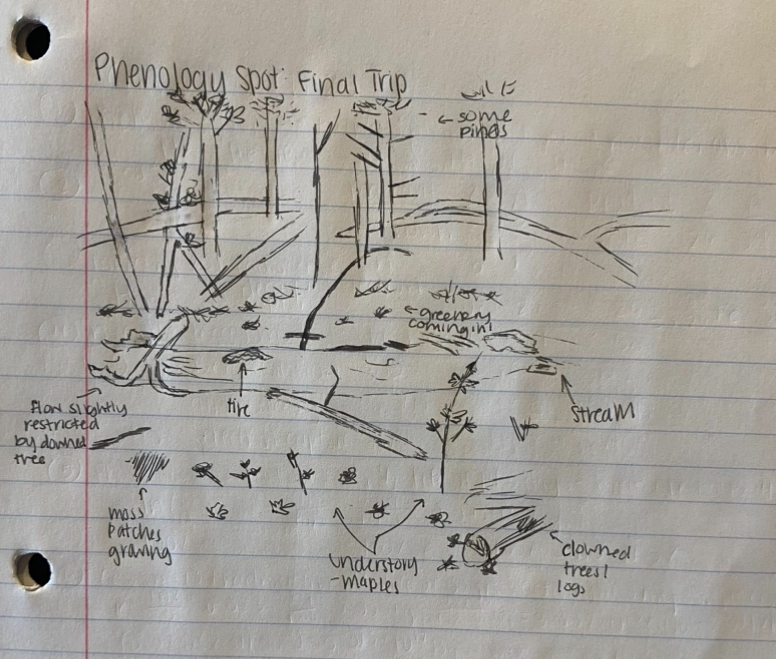 Phenology Spot: Final Trip
← some
pines
← greenery
coming in!
flow slightly
restricted
by downed
tree
tire
stream
moss
patches
growing
understory
-maples
downed
trees/
logs